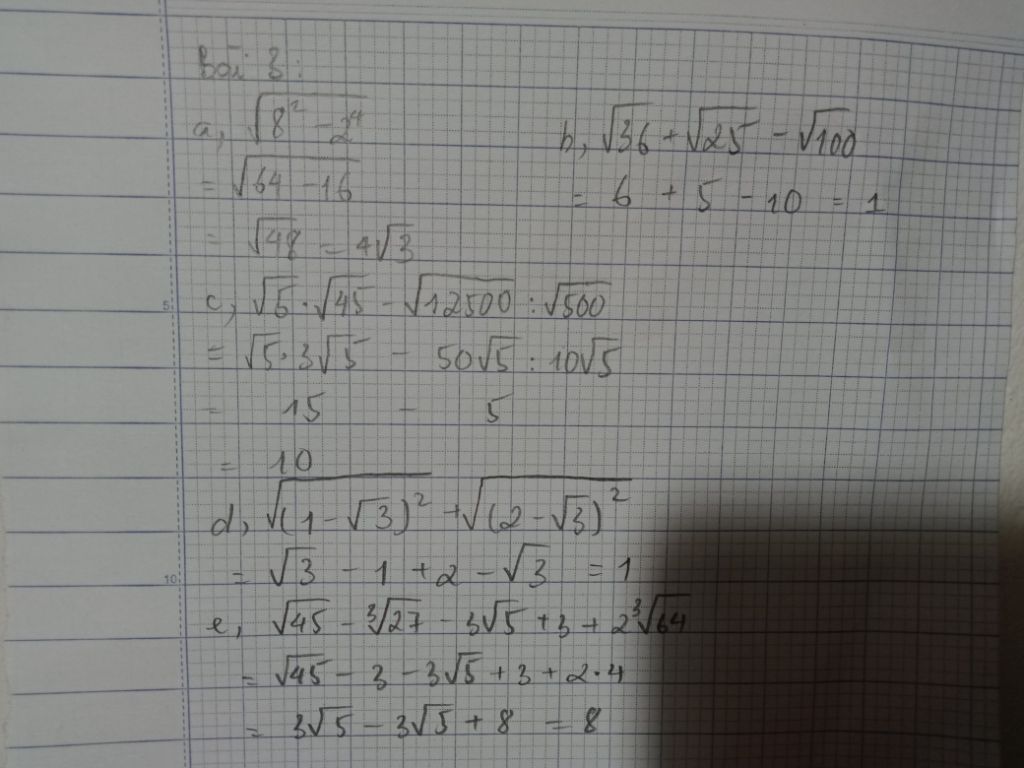 bài 3:
a, √(8² - 2⁴)
= √(64 - 16)
= √48 = 4√3
b, √36 + √25 - √100
= 6 + 5 - 10 = 1
5
c, √5 · √45 - √12500 : √500
= √5 · 3√5 - 50√5 : 10√5
= 15 - 5
= 10
d, √((1 - √3)²) + √((2 - √3)²)
10
= √3 - 1 + 2 - √3 = 1
e, √45 - ∛27 - 3√5 + 3 + 2∛64
= √45 - 3 - 3√5 + 3 + 2·4
= 3√5 - 3√5 + 8 = 8